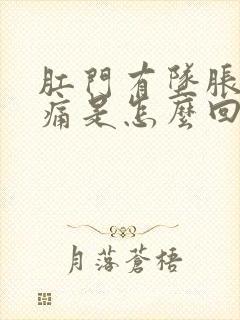 肛門有墜脹
痛是怎麼回
月落蒼梧